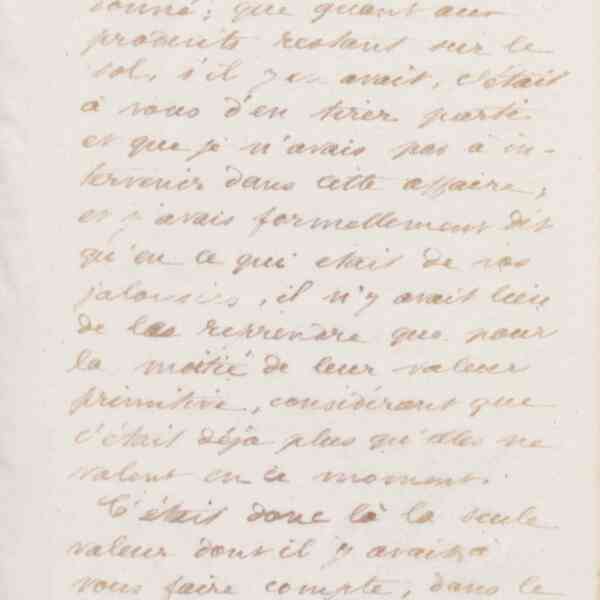 donné; que quant aux
produits restant sur le
sol, s'il y en avait, c'était
à vous d'en tirer parti
et que je n'avais pas à in-
tervenir dans cette affaire;
et j'avais formellement dit
qu'en ce qui était de vos
jalousies, il n'y avait lieu
de les reprendre que pour
la moitié de leur valeur
primitive, considérant que
c'était déjà plus qu'elles ne
valent en ce moment.
C'était donc là la seule
valeur dont il y avait à
vous faire compte, dans le